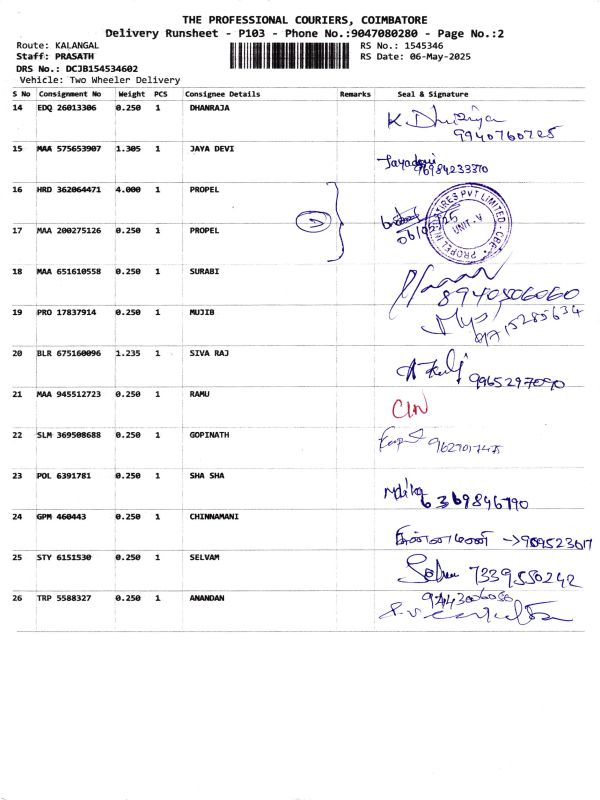 THE PROFESSIONAL COURIERS, COIMBATORE
Delivery Runsheet - P103 - Phone No.:9047080280 - Page No.:2
Route: KALANGAL RS No.: 1545346
Staff: PRASATH RS Date: 06-May-2025
DRS No.: DCJB154534602
Vehicle: Two Wheeler Delivery
S No Consignment No Weight PCS Consignee Details Remarks Seal & Signature
14 EDQ 26013306 0.250 1 DHANRAJA
9940760725
15 MAA 575653907 1.305 1 JAYA DEVI
Jayadevi 76984233370
16 HRD 362064471 4.000 1 PROPEL
06/05/25
PROPEL INDUSTRIES PVT LIMITED - CBE
UNIT - V
17 MAA 200275126 0.250 1 PROPEL
18 MAA 651610558 0.250 1 SURABI
8940506060
19 PRO 17837914 0.250 1 MUJIB
20 BLR 675160096 1.235 1 SIVA RAJ
9965297090
21 MAA 945512723 0.250 1 RAMU
22 SLM 369508688 0.250 1 GOPINATH
23 POL 6391781 0.250 1 SHA SHA
6369846790
24 GPM 460443 0.250 1 CHINNAMANI
சின்னமணி
25 STY 6151530 0.250 1 SELVAM
7339550242
26 TRP 5588327 0.250 1 ANANDAN